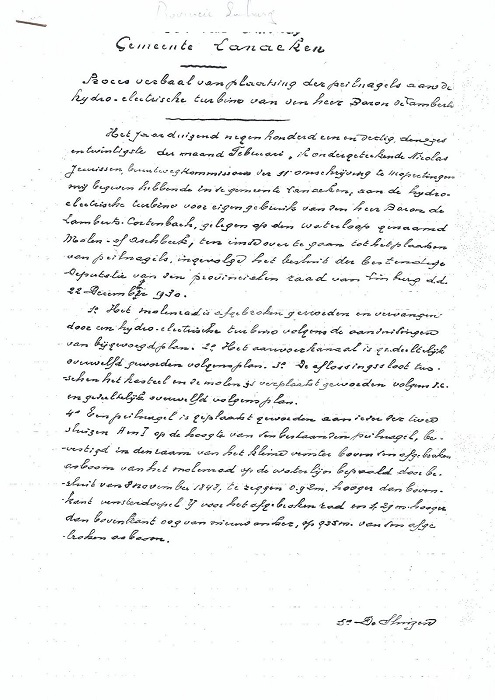 Provincie Limburg
Gemeente Lanaeken
Proces verbaal van plaatsing der peilnagels aan de
hydro-electrische turbine van den heer Baron de Lamberts
Het jaar duizend negen honderd een en dertig, den zes
en twintigste der maand Februari, ik ondergeteekende Nicolas
Jeurissen, buurtwegkommissaris der 11e omschrijving te
mij begeven hebbende in de gemeente Lanaeken, aan de hydro-
electrische turbine voor eigen gebruik van den heer Baron de
Lamberts-Cortenbach, gelegen op den waterloop genaamd
Molen- of Aschbeek, ten einde over te gaan tot het plaatsen
van peilnagels, ingevolge het besluit der Bestendige
Deputatie van den provincialen raad van Limburg d.d.
22 December 1930.
1e. Het molenrad is afgebroken geworden en vervangen
door een hydro-electrische turbine volgens de aanduidingen
van bijgevoegd plan. 2e. Het aanvoerkanaal is gedeeltelijk
overwelfd geworden volgens plan. 3e. De aflossingssloot tus-
schen het kasteel en de molen is verplaatst geworden volgens
en gedeeltelijk overwelfd volgens plan.
4e Een peilnagel is geplaatst geworden aan ieder der twee
sluizen H en I op de hoogte van den bestaanden peilnagel, be-
vestigd in den raam van het kleine venster boven den afgebroken
asboom van het molenrad op de waterlijn bepaald door be-
sluit van 8 november 1843, te zeggen 0.92m. hooger dan boven-
kant vensterdorpel IJ voor het afgebroken rad en 1,29m. hooger
dan bovenkant oog van nieuw anker, op 935m. van den afge-
broken asboom.
5e De Sluizen